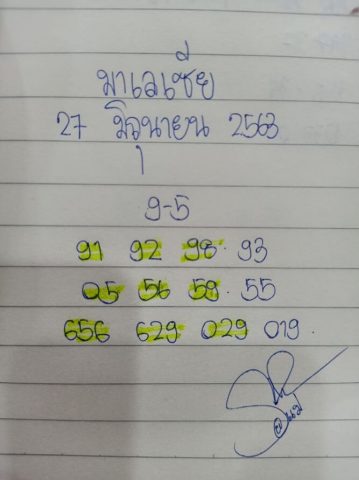 มาเลเซีย
27 มิถุนายน 2563
9-5
91 92 98 93
05 56 59 55
656 629 029 019